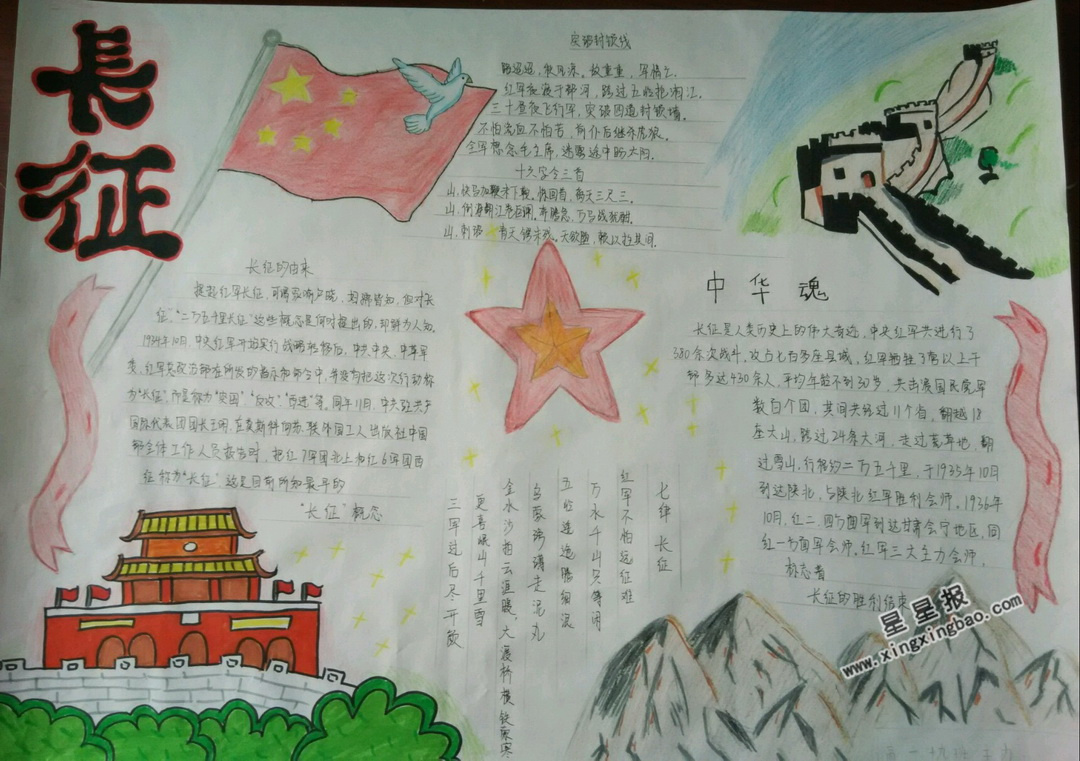 长征
突破封锁线
路迢迢,秋风凉。敌重重,军情忙。
红军夜渡于都河,跨过五岭抢湘江。
三十昼夜飞行军,突破四道封锁墙。
不怕流血不怕苦,前仆后继杀虎狼。
全军想念毛主席,迷雾途中盼太阳。
十六字令三首
山,快马加鞭未下鞍。惊回首,离天三尺三。
山,倒海翻江卷巨澜。奔腾急,万马战犹酣。
山,刺破青天锷未残。天欲堕,赖以拄其间。
长征的由来
提起红军长征,可谓家喻户晓,妇孺皆知,但对"长
征","二万五千里长征"这些概念是何时提出的,却鲜为人知。
1934年10月,中央红军开始实行战略转移后,中共中央、中革军
委、红军总政治部在所发的指示和命令中,并没有把这次行动称
为"长征",而是称为"突围""反攻""西进"等。同年11月,中共驻共产
国际代表团团长王明,在莫斯科向苏联外国工人出版社中国
部全体工作人员报告时,把红7军团北上和红6军团西
征称为"长征"这是目前所知最早的
"长征"概念
中华魂
长征是人类历史上的伟大奇迹,中央红军共进行了
380余次战斗,攻占七百多座县城,红军牺牲了营以上干
部多达430余人,平均年龄不到30岁,共击溃国民党军
数百个团,其间共经过11个省,翻越18
座大山,跨过24条大河,走过荒草地,翻
过雪山,行程约二万五千里,于1935年10月
到达陕北,与陕北红军胜利会师。1936年
10月,红二、四方面军到达甘肃会宁地区,同
红一方面军会师。红军三大主力会师,
标志着
长征的胜利结束
七律 长征
红军不怕远征难
万水千山只等闲
五岭逶迤腾细浪
乌蒙磅礴走泥丸
金水沙拍云崖暖,大渡桥横铁索寒
更喜岷山千里雪
三军过后尽开颜
星星报
www.xingxingbao.com